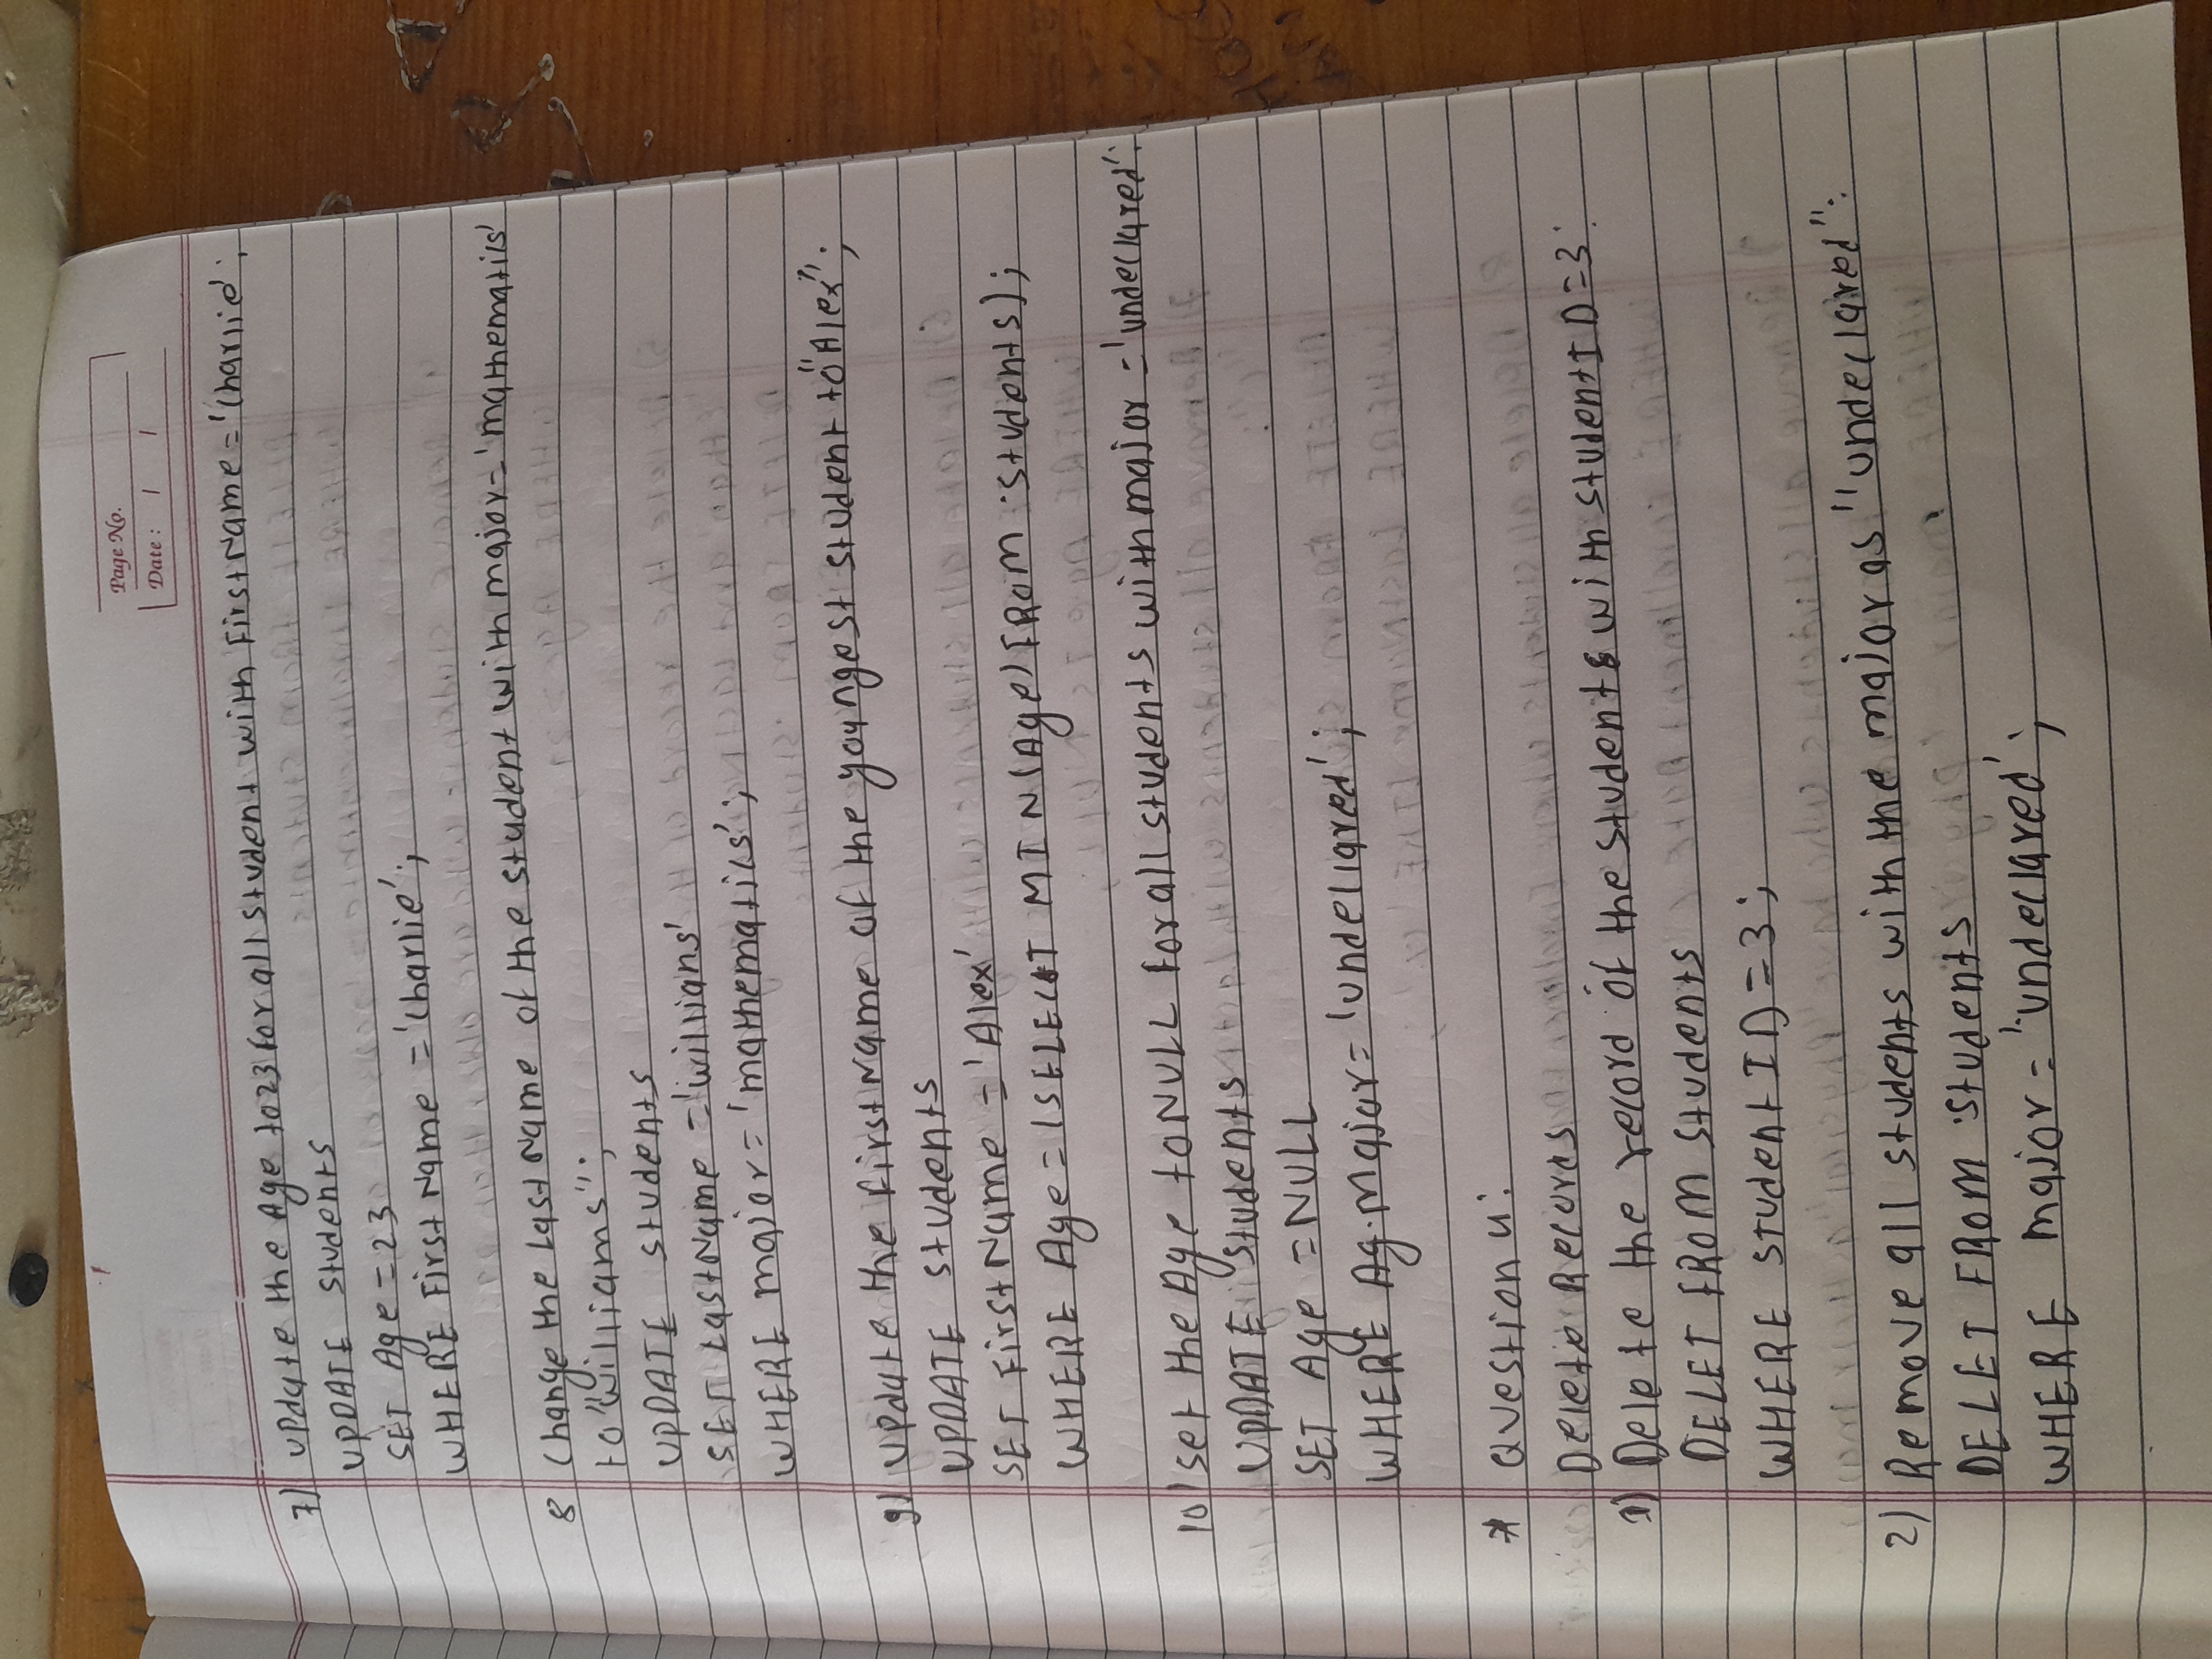 Page No.
Date : / /
7) Update the Age to 23 for all student with FirstName = 'Charlie';
UPDATE Students
SET Age = 23
WHERE FirstName = 'Charlie';
8 Change the LastName of the student with major = 'mathematics'
to "Williams";
UPDATE students
SET LastName = 'Willians'
WHERE major = 'mathematics';
9) Update the firstName of the youngest student to "Alex";
UPDATE students
SET FirstName = 'Alex'
WHERE Age = (SELECT MIN(Age) FROM students);
10) set the Age to NULL for all students with major = 'undeclared':
UPDATE students
SET Age = NULL
WHERE Ag.Major = 'undeclared';
* Question 4:
Delete Records
1) Delete the record of the students with studentID = 3:
DELET FROM students
WHERE studentID = 3;
2) Remove all students with the major as "undeclared":
DELET FROM students
WHERE major = 'undeclared';